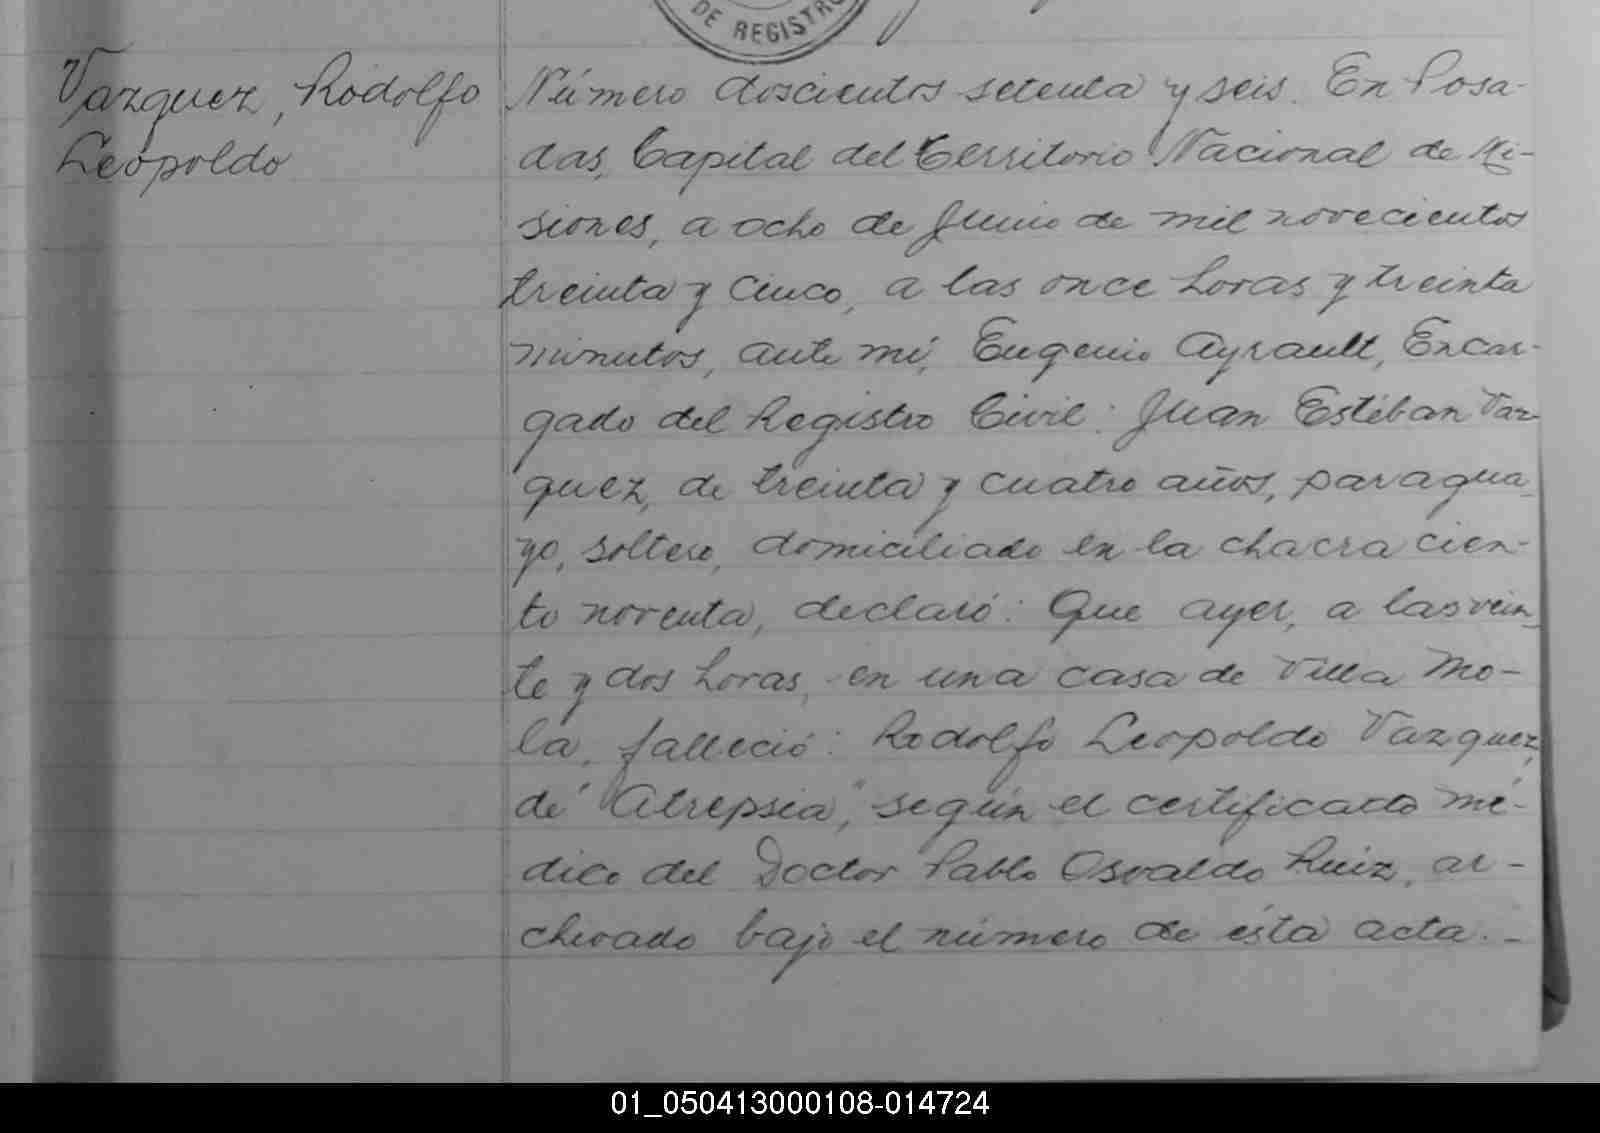 DE REGISTRO
Vazquez, Rodolfo
Leopoldo
Número doscientos setenta y seis. En Posa-
das, Capital del Territorio Nacional de Mi-
siones, a ocho de Junio de mil novecientos
treinta y cinco, a las once horas y treinta
minutos, ante mí, Eugenio Ayrault, Encar-
gado del Registro Civil: Juan Estéban Vaz-
quez, de treinta y cuatro años, paragua-
yo, soltero, domiciliado en la chacra cien-
to noventa, declaró: Que ayer, a las vein-
te y dos horas, en una casa de Villa Mo-
la, falleció: Rodolfo Leopoldo Vazquez,
de "Atrepsia", según el certificado mé-
dico del Doctor Pablo Osvaldo Ruiz, ar-
chivado bajo el número de ésta acta.-
01_050413000108-014724